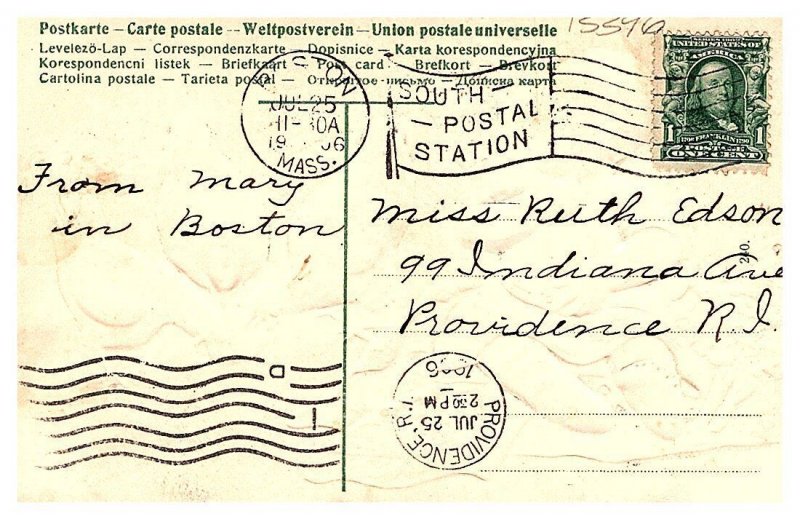 15546
Postkarte — Carte postale — Weltpostverein — Union postale universelle
Levelező-Lap — Correspondenzkarte — Dopisnice — Karta korespondencyjna
Korespondencni listek — Briefkaart — Post card — Brefkort — Brevkort
Cartolina postale — Tarieta postal — Открытое письмо — Дописна карта
JUL 25
11-30A
MASS.
SOUTH
POSTAL
STATION
UNITED STATES OF
AMERICA
1 FRANKLIN 1
ONE CENT
From Mary
in Boston
Miss Ruth Edson
99 Indiana Ave
Providence R.I.
240.
D
1
PROVIDENCE, R.I.
JUL 25
2 30 PM
1906